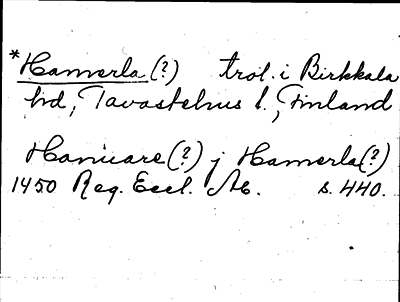 *Hamerla (?) trol. i Birkkala
hd, Tavastehus l., Finland
Hanuare (?) j Hamerla (?)
1450 Reg. Eccl. Ab. s. 440.